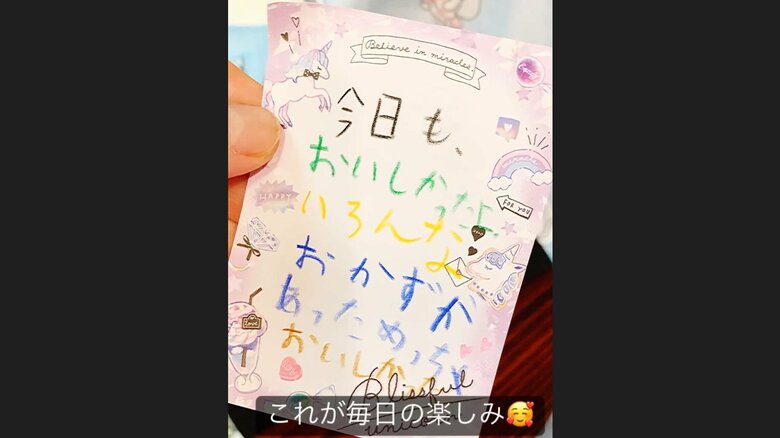 Believe in miracles.
今日も、
おいしかったよ。
FOR YOU
HAPPY
いろんな
おかずが
あっためっちゃ
おいしかっ
Blissful
unicorn
これが毎日の楽しみ🥰